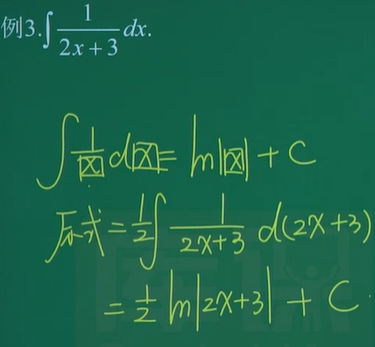 例3.∫ 1/(2x+3) dx.
∫ 1/x dx = ln|x| + C
原式 = 1/2 ∫ 1/(2x+3) d(2x+3)
= 1/2 ln|2x+3| + C.